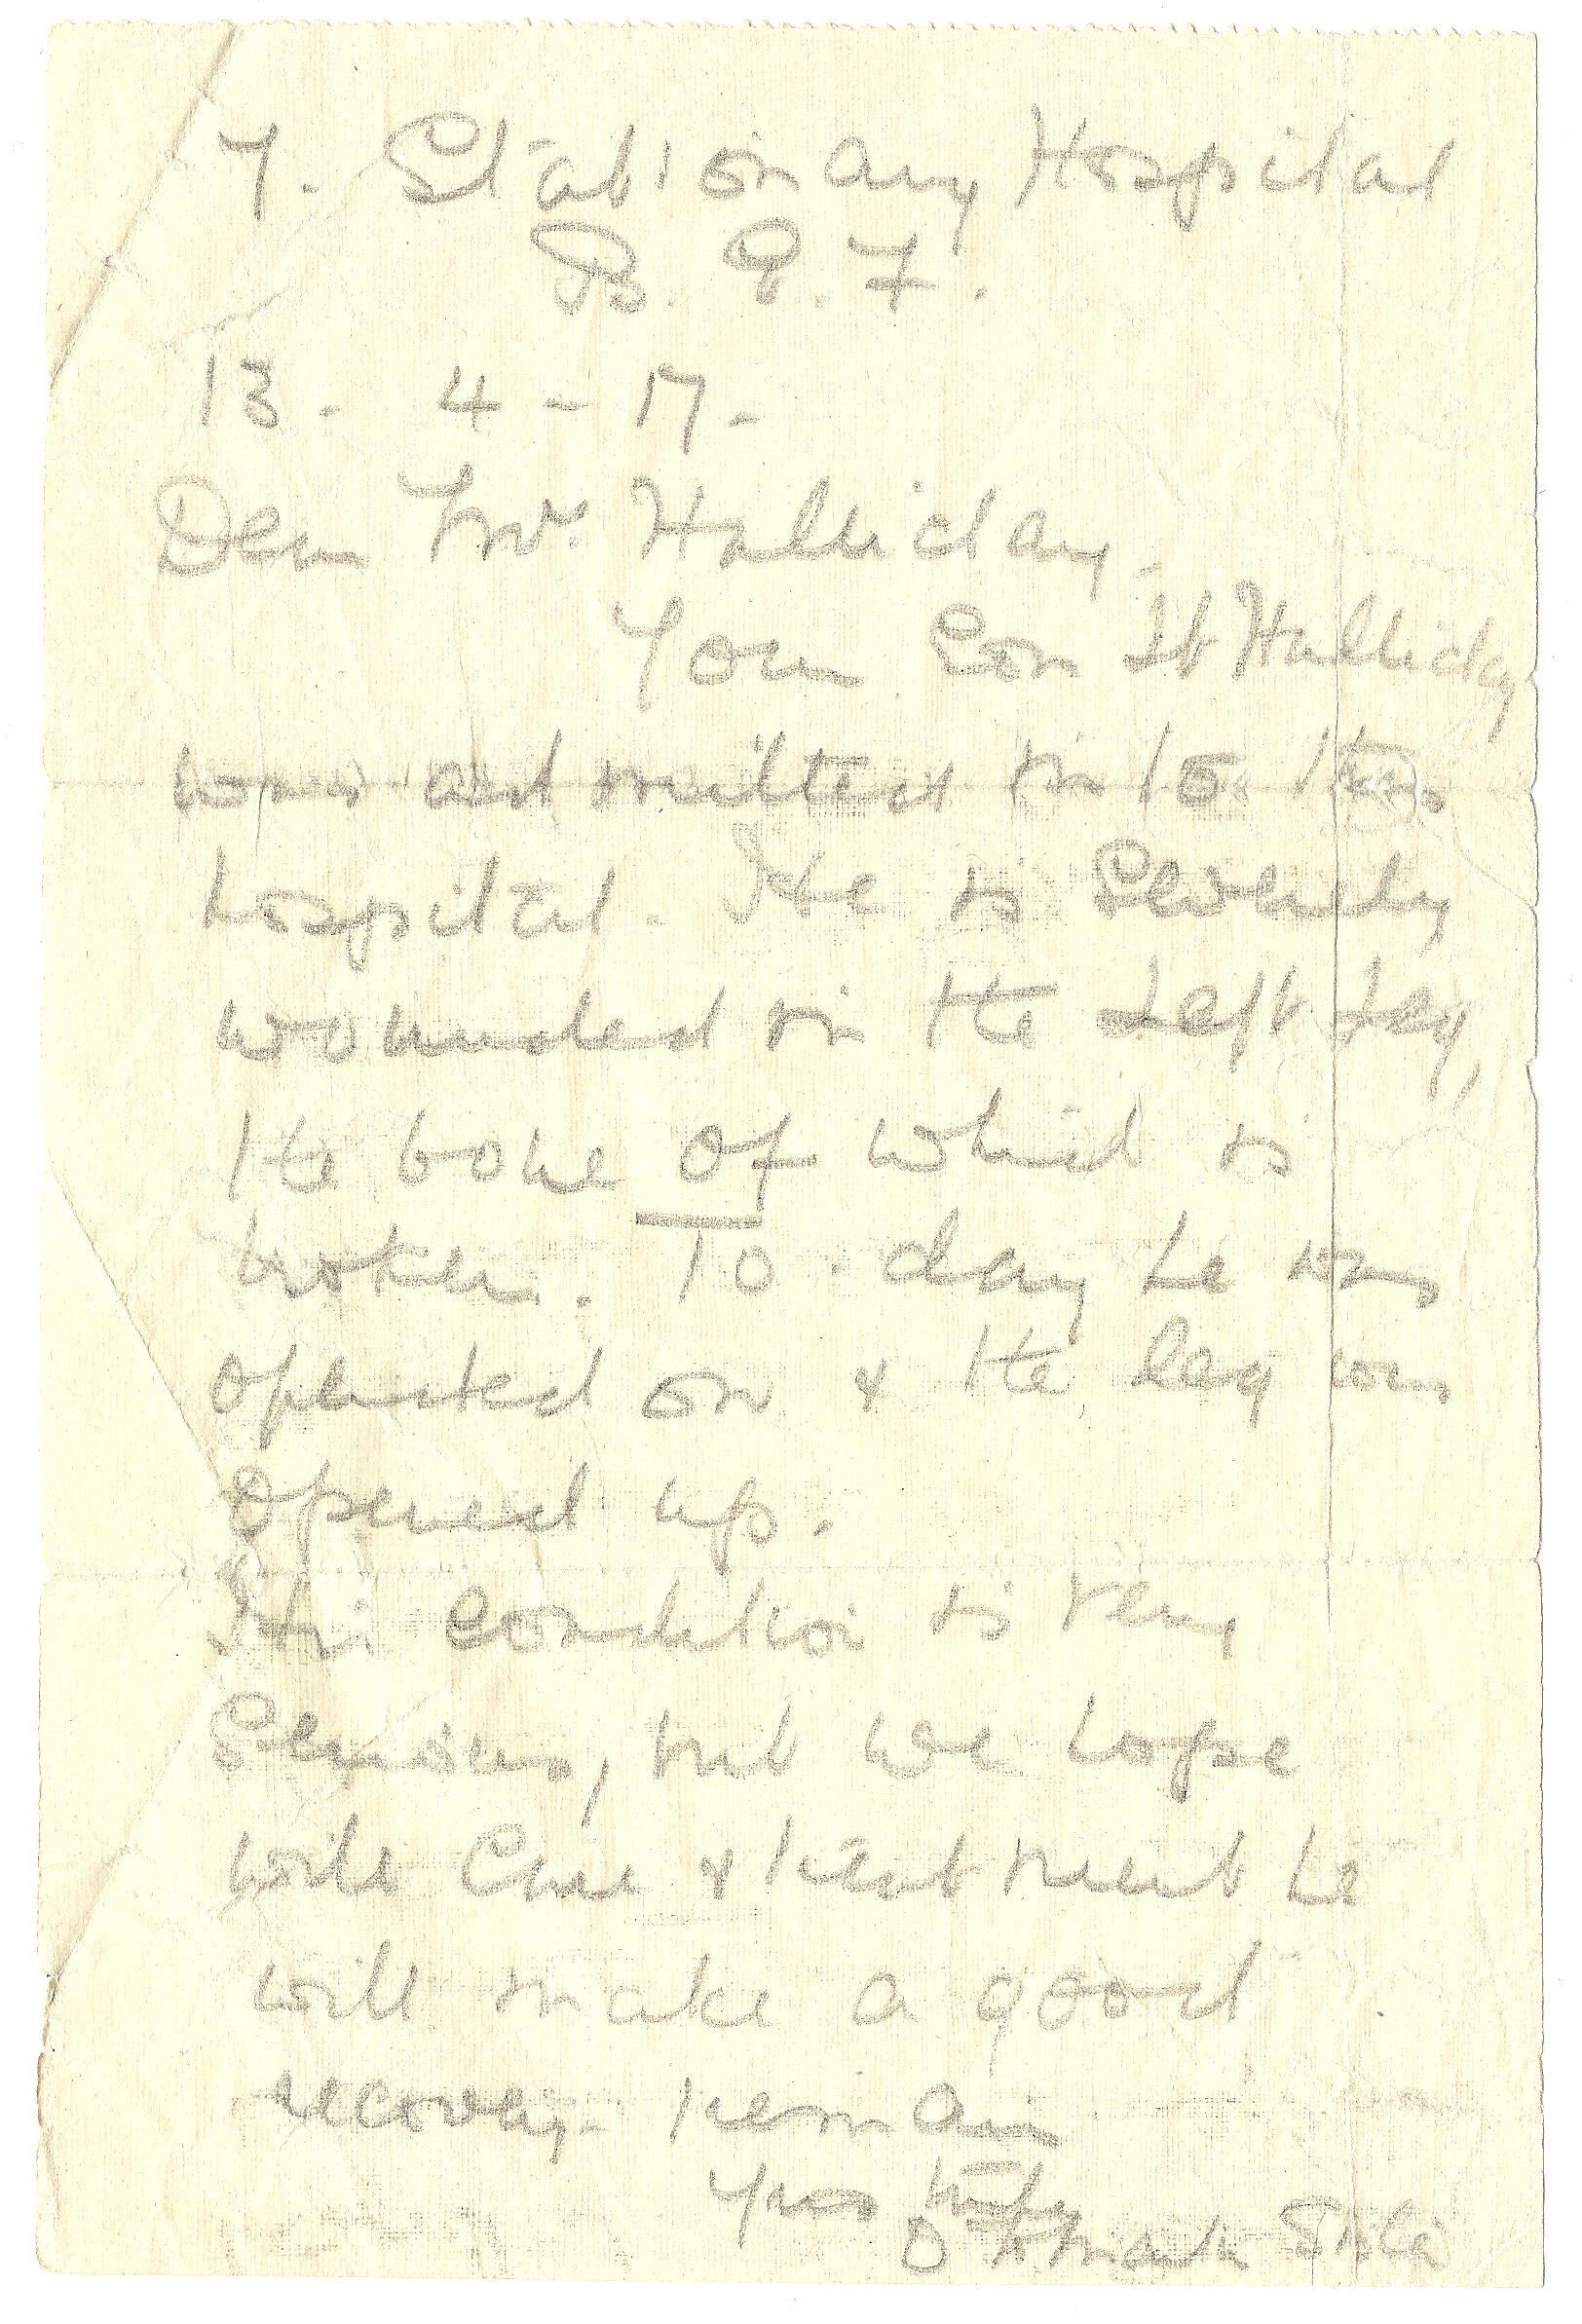 7. Stationary Hospital
B. E. F.
13. 4 - 17.
Dear Mrs Halliday.
Your Son Lt Halliday
was admitted into this
hospital. He is Severely
wounded in the Left Leg,
the bone of which is
broken. To-day he was
operated on & the leg was
opened up.
His condition is very
Serious, but we hope
with Care & treatment he
will make a good
recovery. I remain
Yrs truly
Sister